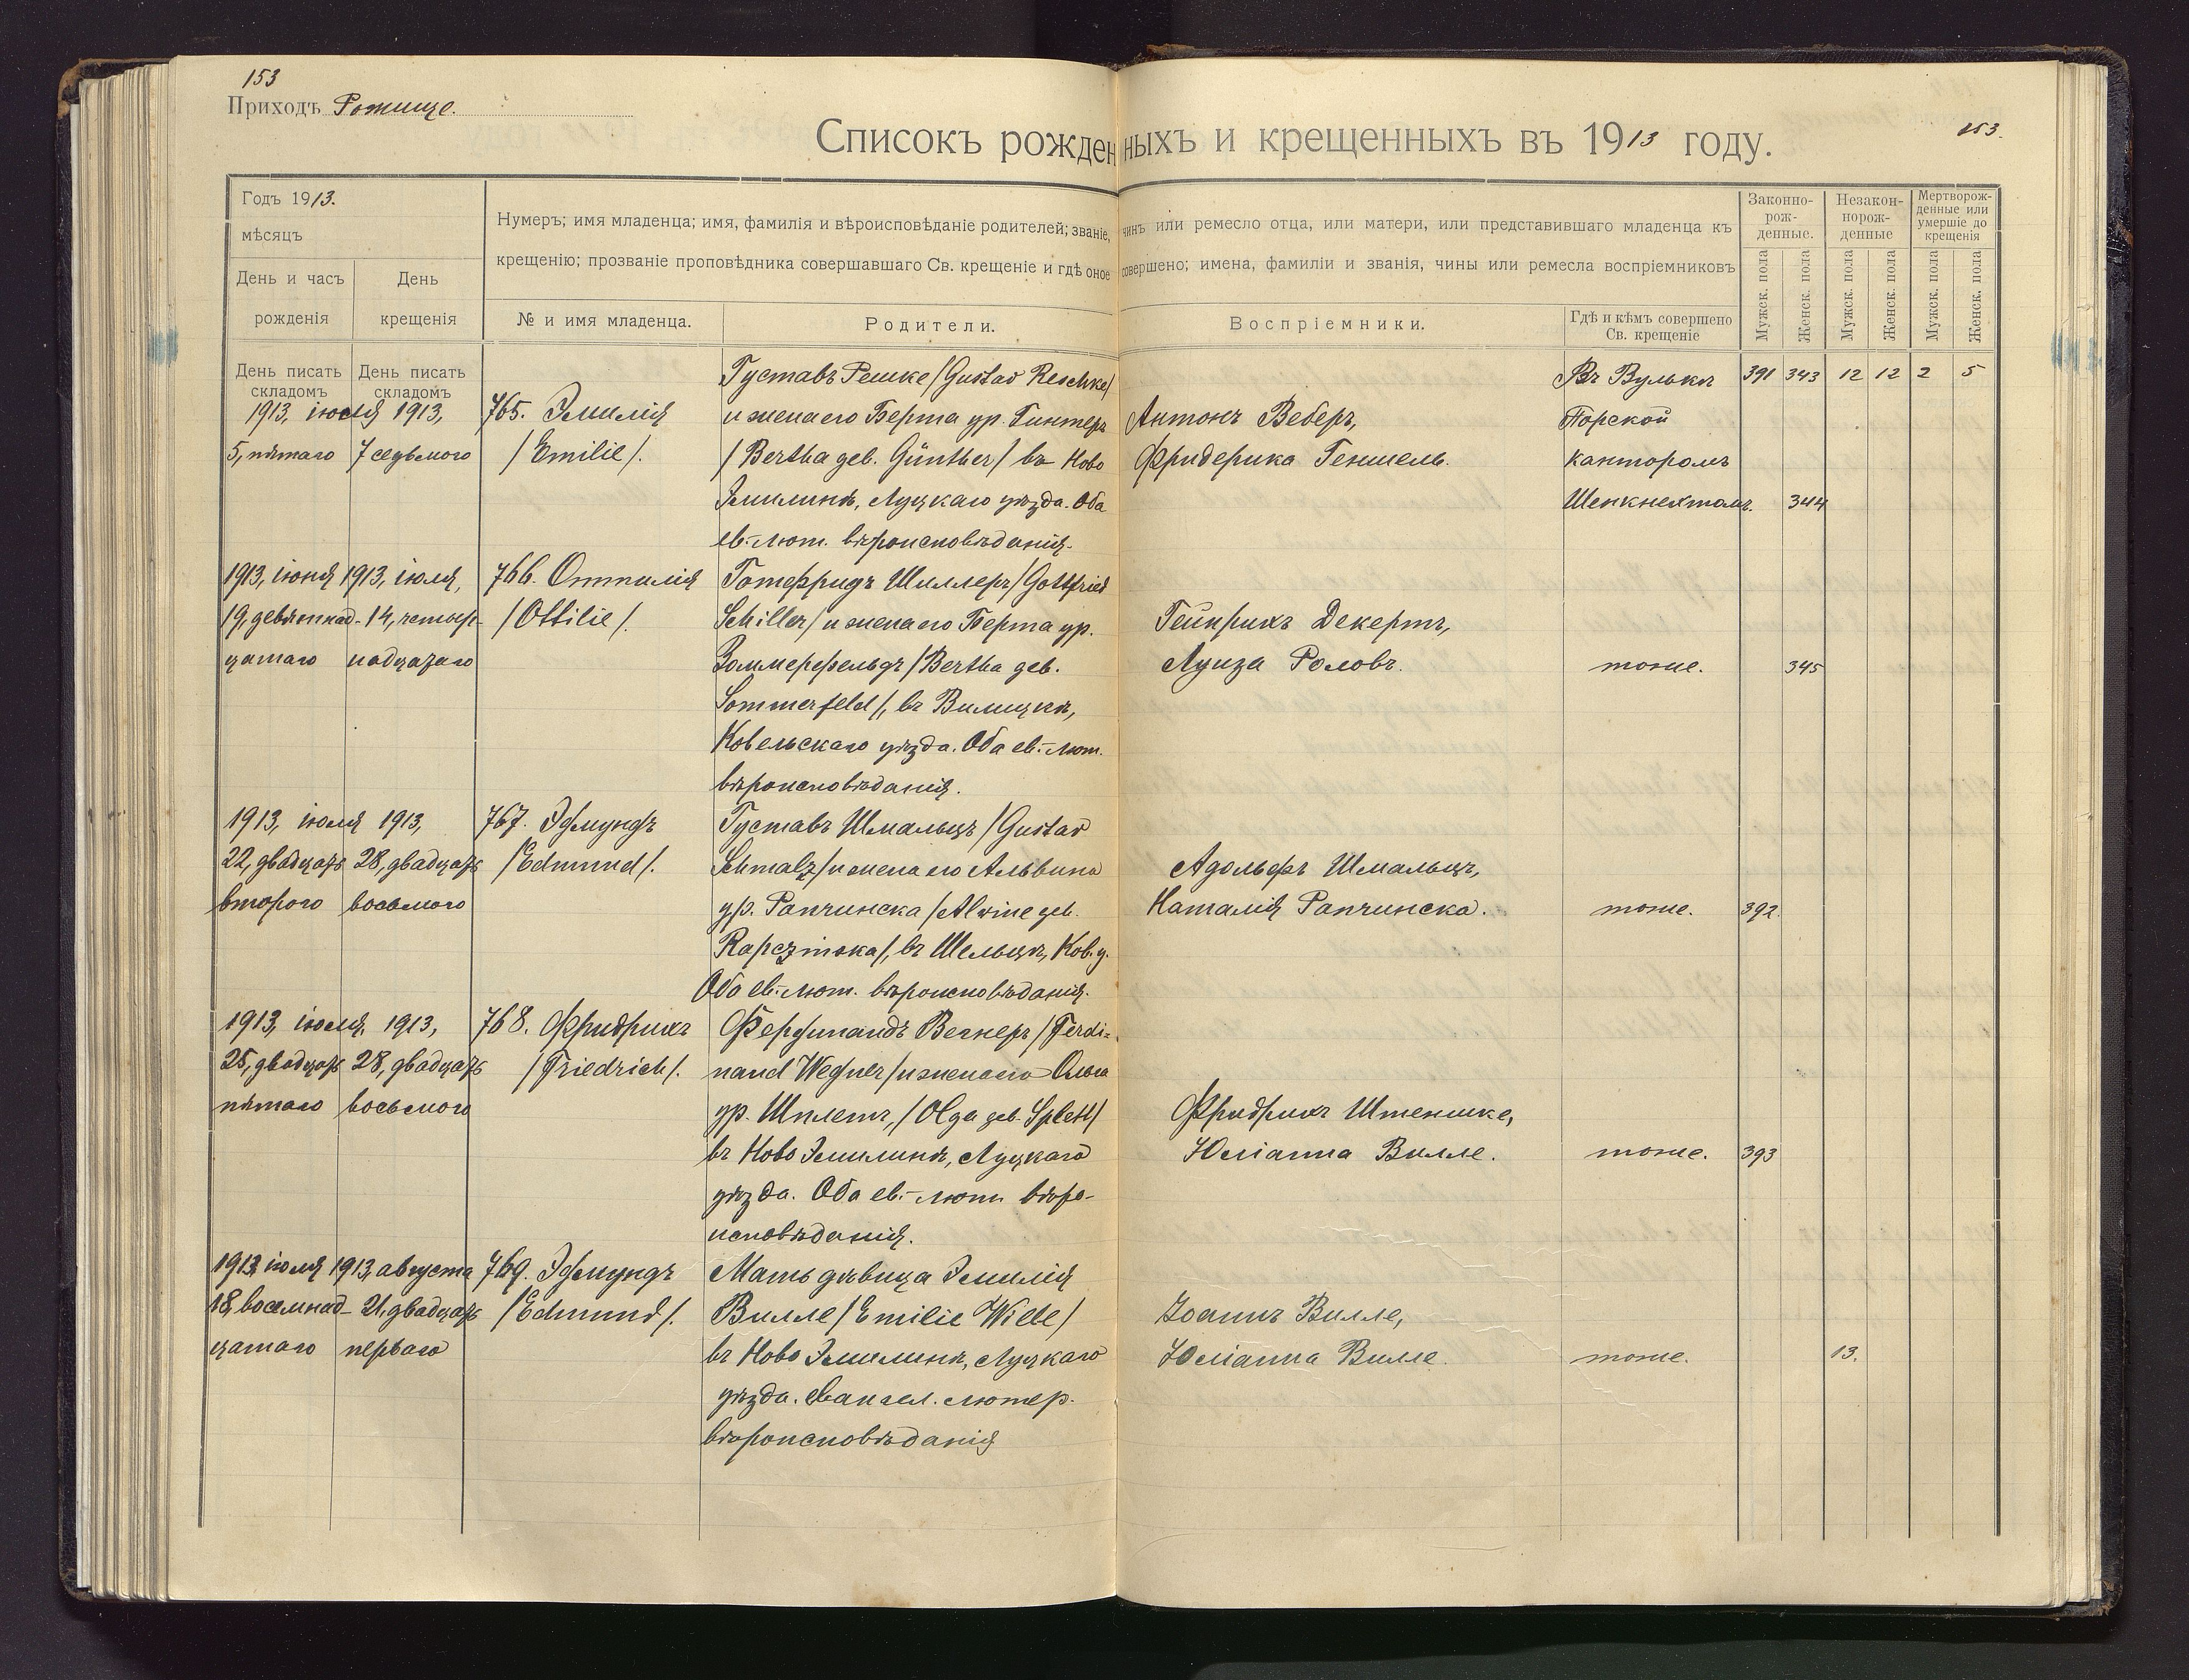 153
Приходъ Рожище.
153.
Списокъ рожденныхъ и крещенныхъ въ 1913 году.
Годъ 1913.
мѣсяцъ
День и часъ рожденія
День крещенія
Нумеръ; имя младенца; имя, фамилія и вѣроисповѣданіе родителей; званіе, чинъ или ремесло отца, или матери, или представившаго младенца къ
крещенію; прозваніе проповѣдника совершавшаго Св. крещеніе и гдѣ оное совершено; имена, фамиліи и званія, чины или ремесла воспріемниковъ
№ и имя младенца.
Родители.
Воспріемники.
Гдѣ и кѣмъ совершено
Св. крещеніе
Законно-
рож-
денные.
Незакон-
норож-
денные
Мертворож-
денные или
умершіе до
крещенія
Мужск. пола
Женск. пола
Мужск. пола
Женск. пола
Мужск. пола
Женск. пола
День писать
складомъ
День писать
складомъ
391 343 12 12 2 5
1913, іюля 1913,
5, пятаго
7 седьмого
765. Эмилія
/Emilie/.
Густавъ Решке/Gustav Reschke/
и жена его Берта ур. Гинтеръ
/Bertha geb. Günther/ въ Ново
Эмилинѣ, Луцкаго уѣзда. Оба
ев.-лют. вѣроисповѣданія.
Антонъ Веберъ,
Фридерика Геншель.
Въ Вулькѣ
Порской
канторомъ
Шенкнехтомъ.
344
1913, іюня
19, девятнад-
цатаго
1913, іюля,
14, четыр-
надцатаго
766. Оттилія
/Ottilie/.
Готфридъ Шиллеръ/Gottfried
Schiller/ и жена его Берта ур.
Зоммерфельдъ/Bertha geb.
Sommerfeld/, въ Вилицкѣ,
Ковельскаго уѣзда. Оба ев.-лют.
вѣроисповѣданія.
Гейнрихъ Декертъ,
Луиза Роловъ.
тоже.
345
1913, іюля 1913,
22, двадцать
второго
28, двадцать
восьмого
767. Эдмундъ
/Edmund/.
Густавъ Шмальцъ/Gustav
Schmalz/ и жена его Альвина
ур. Рапчинска/Alwine geb.
Rapczinska/, въ Шельцѣ, Ков. у.
Оба ев.-лют. вѣроисповѣданія.
Адольфъ Шмальцъ,
Наталія Рапчинска.
тоже.
392.
1913, іюля, 1913,
25, двадцать
пятаго
28, двадцать
восьмого
768. Фридрихъ
/Friedrich/.
Фердинандъ Вегнеръ/Ferdi-
nand Wegner/ и жена его Ольга
ур. Шплетъ, /Olga geb. Splett/
въ Ново Эмилинѣ, Луцкаго
уѣзда. Оба ев.-лют. вѣро-
исповѣданія.
Фридрихъ Штеншке,
Юліанна Вилле.
тоже.
393
1913 іюля
18, восемнад-
цатаго
1913, августа
21, двадцать
перваго
769. Эдмундъ
/Edmund/.
Мать дѣвица Эмилія
Вилле/Emilie Wille/
въ Ново Эмилинѣ, Луцкаго
уѣзда. Евангел. лютер.
вѣроисповѣданія
Іоаннъ Вилле,
Юліанна Вилле.
тоже.
13.